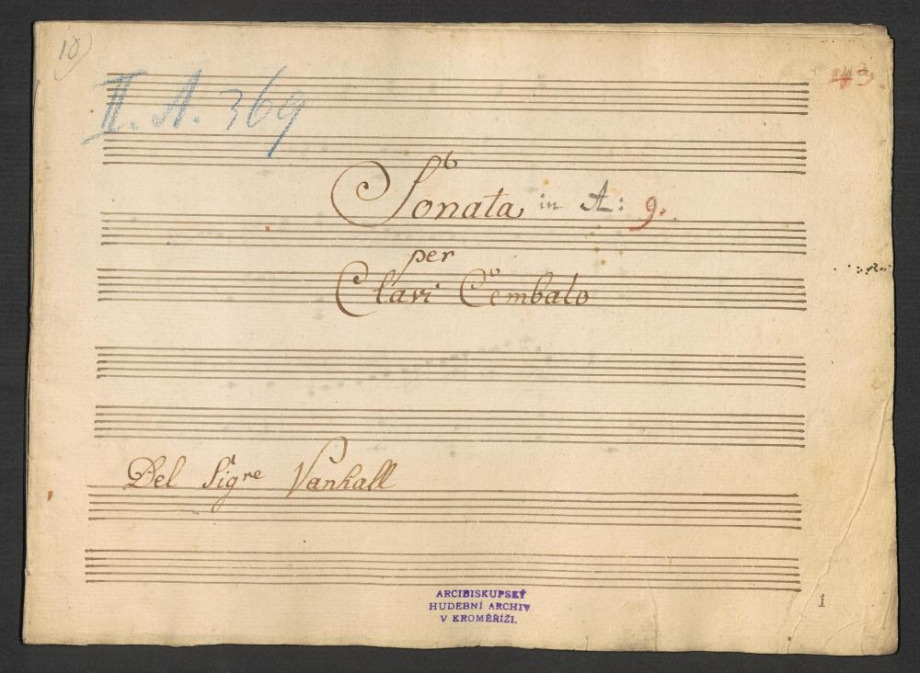 10)
II. A. 369
43
Sonata in A: 9.
per
Clavi Cembalo
Del Sigre Vanhall
ARCIBISKUPSKÝ
HUDEBNÍ ARCHIV
V KROMĚŘÍŽI.
1